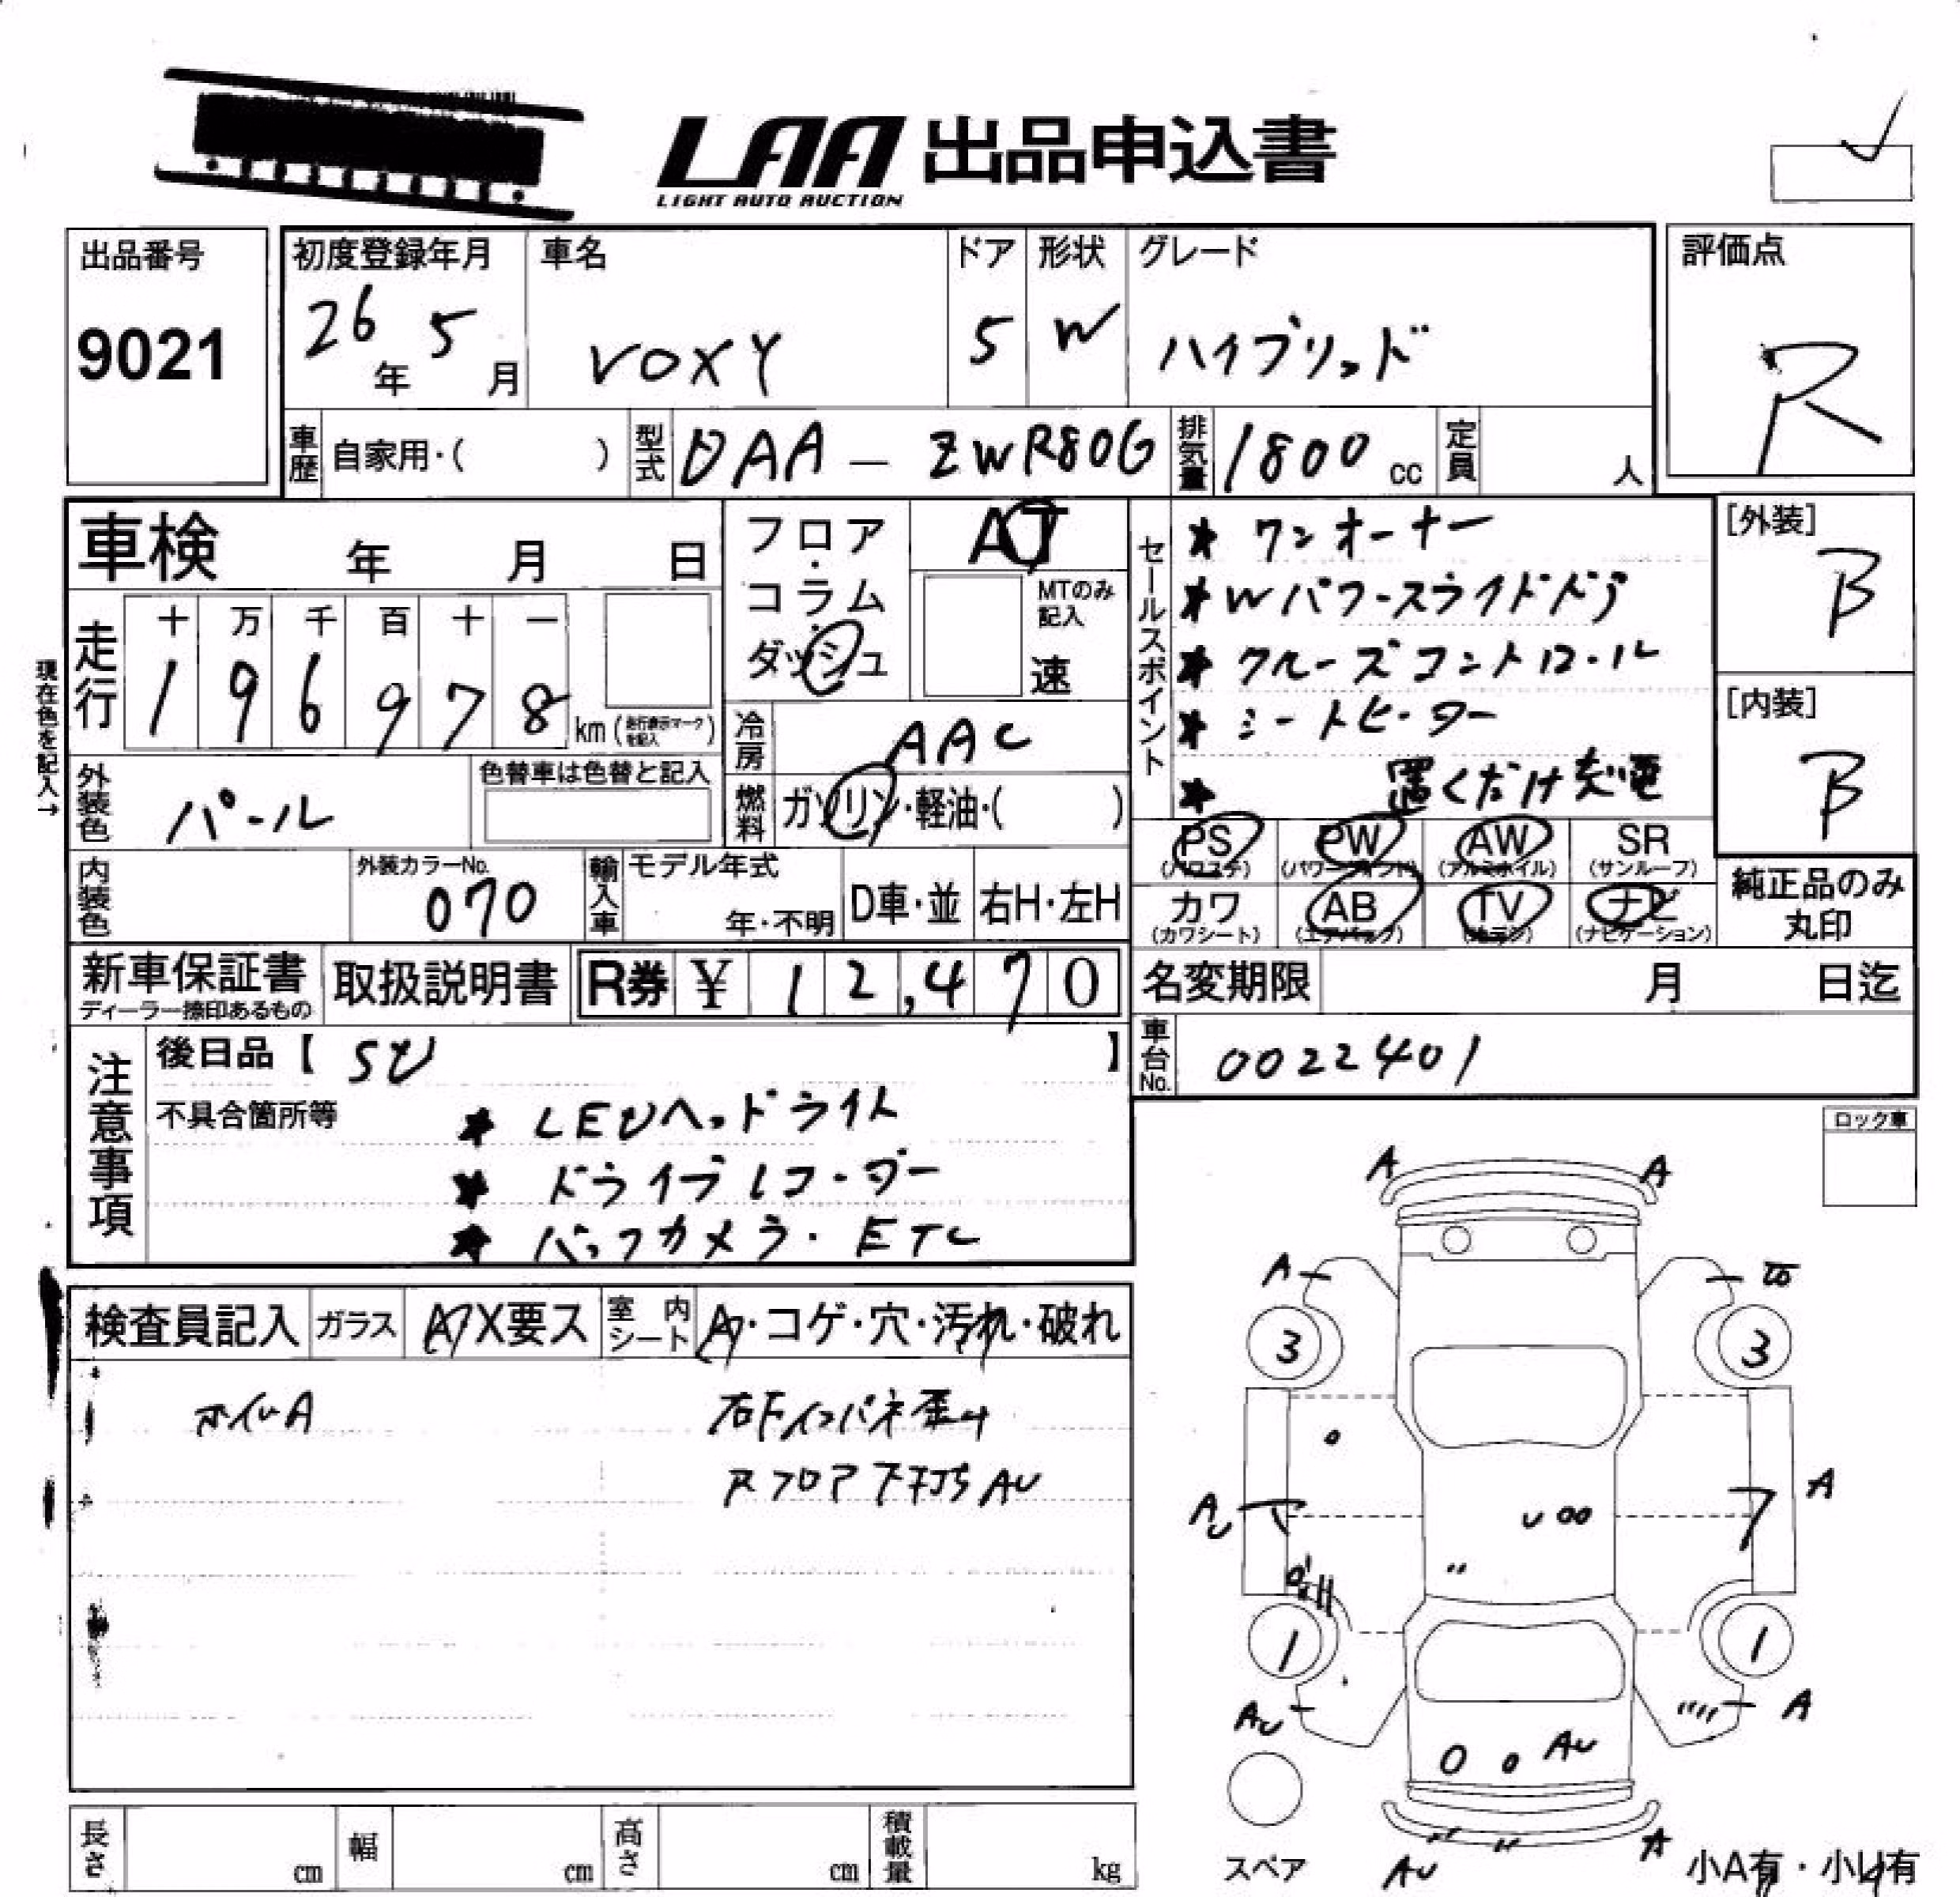 LAA 出品申込書
LIGHT AUTO AUCTION
出品番号
9021
初度登録年月
26年 5月
車名
VOXY
ドア
5
形状
W
グレード
ハイブリッド
評価点
R
車歴 自家用・( )
型式 DAA-ZWR80G
排気量 1800 cc
定員 人
車検 年 月 日
フロア・コラム・ダッシュ
AT
MTのみ記入
速
セールスポイント
★ ワンオーナー
★ Wパワースライドドア
★ クルーズコントロール
★ シートヒーター
★ 置くだけ充電
[外装]
B
[内装]
B
現在色を記入→
走行
十 万 千 百 十 一
1 9 6 9 7 8 km (走行表示マークを記入)
冷房 AAC
外装色 パール
色替車は色替と記入
燃料 ガソリン・軽油・( )
PS (パワステ)
PW (パワーウインド)
AW (アルミホイル)
SR (サンルーフ)
カワ (カワシート)
AB (エアバッグ)
TV (テレビ)
ナビ (ナビゲーション)
純正品のみ丸印
内装色
外装カラーNo.
070
輸入車
モデル年式
年・不明
D車・並
右H・左H
新車保証書
ディーラー捺印あるもの
取扱説明書
R券 ¥ 12,470
名変期限 月 日迄
車台No. 0022401
注意事項
後日品【 SD 】
不具合箇所等
★ LEDヘッドライト
★ ドライブレコーダー
★ バックカメラ・ETC
ロック車
検査員記入
ガラス A X要ス
室内シート A・コゲ・穴・汚れ・破れ
ホイルA
右Fインパネ歪み
Rフロア下打ち AU
A A
A
3 3
AU A
1 1
AU A
AU
AU A
スペア
小A有・小U有
長さ cm
幅 cm
高さ cm
積載量 kg